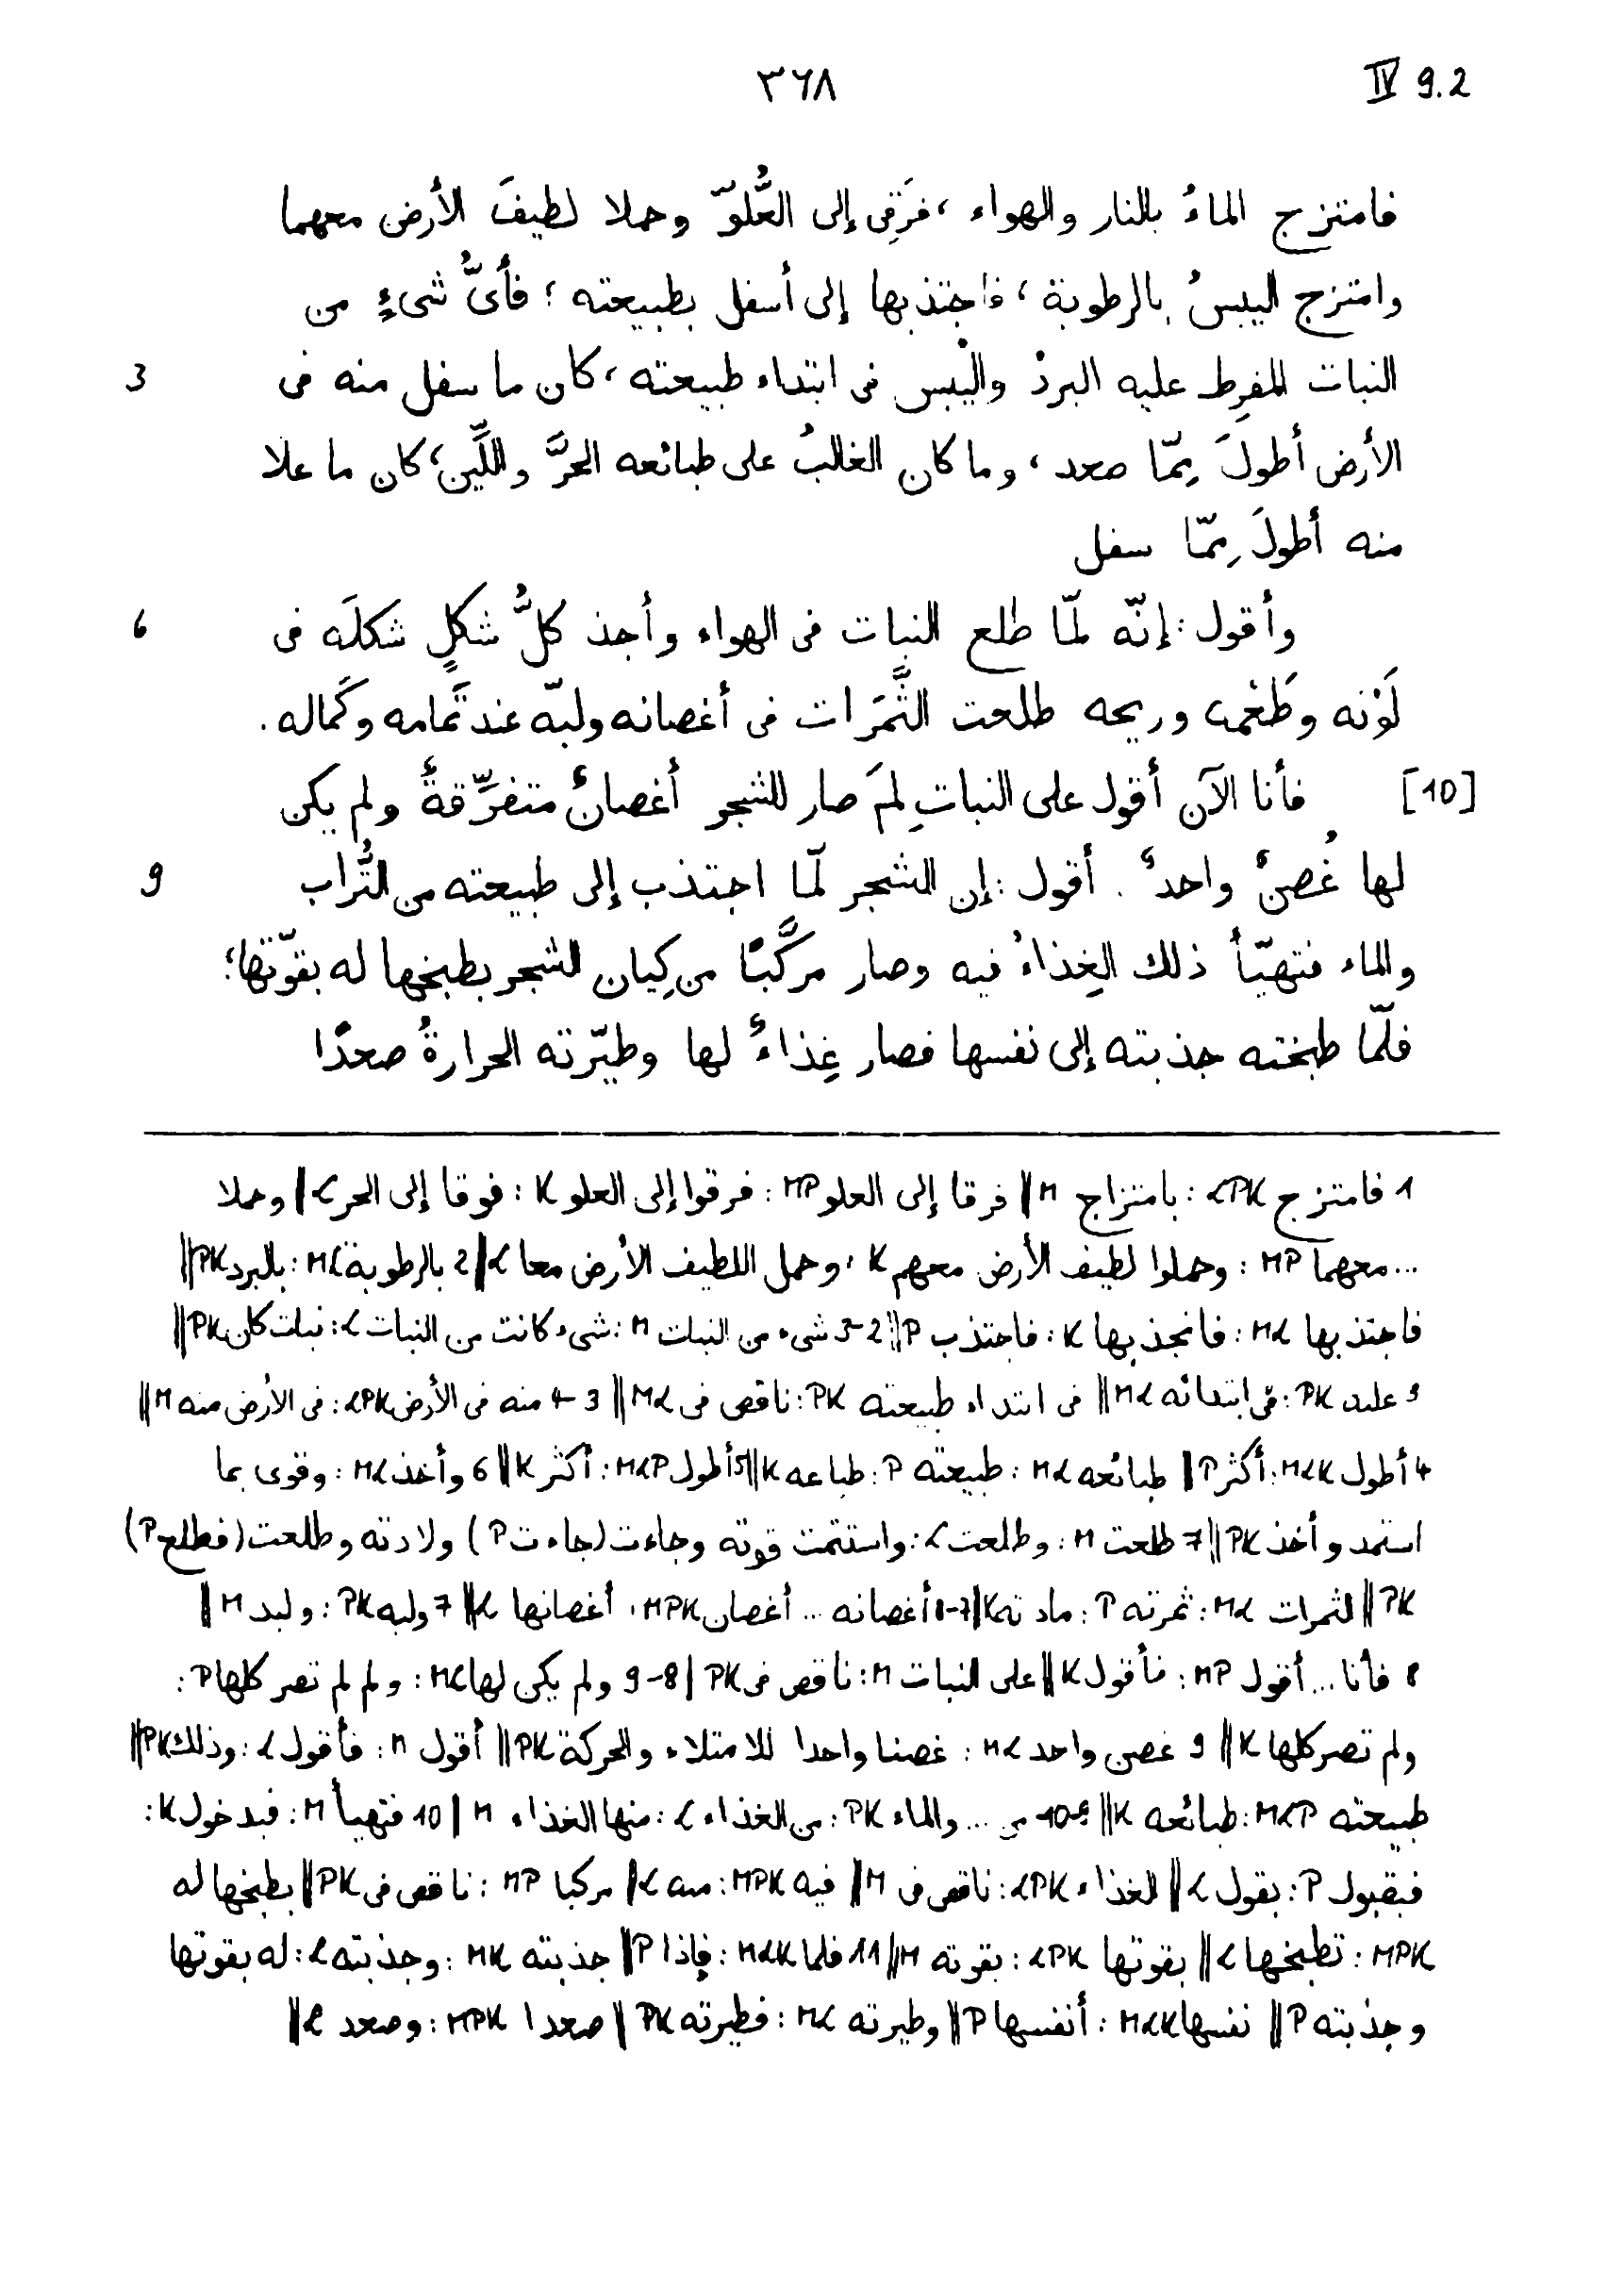 ٣٦٨ IV 9.2
فامتزج الماءُ بالنار والهواء ، فرَقِى إلى العُّلوّ وحملا لطيفَ الأرض معهما
وامتزج اليبسُ بالرطوبة ، فاجتذبها إلى أسفل بطبيعته ؛ فأىُّ شىءٍ من
3 النبات المفرِط عليه البردُ واليُبس فى ابتداء طبيعته ، كان ما سفل منه فى
الأرض أطولَ مِمّا صعد ، وما كان الغالبُ على طبائعه الحرَّ واللِّين ، كان ما علا
منه أطولَ مِمّا سفل
6 وأقول : إنّه لمّا طلع النبات فى الهواء وأجذ كلُّ شكلٍ شكلَه فى
لَوْنه وطَعْمه وريحه طلعت الثَّمَرَات فى أغصانه ولبّه عند تَمامه وكَماله .
[10] فأنا الآن أقول على النباتِ لِمَ صار للشجر أغصانٌ متفرِّقةٌ ولم يكن
9 لها غُصنٌ واحدٌ . أقول : إن الشجر لمّا اجتذب إلى طبيعته من التُّراب
والماء فتهيّأ ذلك الغِذاءُ فيه وصار مركَّبًا من كِيان الشجر بطبخها له بقوّتها ؛
فلمّا طبخته جذبته إلى نفسها فصار غِذاءً لها وطيّرته الحرارةُ صعدًا
١ فامتزج LPK : بامتزاج M || فرقا إلى العلو MP : فرقوا إلى العلو K : فوقا إلى الحر L || وحملا
... معهما MP : وحملوا لطيف الأرض معهم K ، وحمل اللطيف الأرض معا L || 2 بالرطوبة ML : بالبرد PK ||
فاجتذبها ML : فانجذبها K : فاجتذب P || 2-3 شىء من النبات M : شىء كانت من النبات L : نبات كان PK ||
3 عليه PK : فى ابتدائه ML || فى ابتداء طبيعته PK : ناقص فى ML || 3-4 منه فى الأرض LPK : فى الأرض منه M ||
4 أطول MLK : أكثر P || طبائعه ML : طبيعته P : طباعه K || 5 أطول MLP : أكثر K || 6 وأخذ ML : وقوى بما
استمد وأخذ PK || 7 طلعت M : وطلعت L : واستتمت قوته وجاءت (جاءت P) ولادته وطلعت (فطلع P)
PK || الثمرات ML : ثمرته P : مادته K || 7-8 أغصانه ... أغصان MPK ، أغصانها L || 7 ولبه PK : ولبد M ||
8 فأنا ... أقول MP : فأقول K || على النبات M : ناقص فى PK || 8-9 ولم يكن لها ML : ولم لم تصر كلها P :
ولم تصر كلها K || 9 غصن واحد ML : غصنا واحدا للامتلاء والحركة PK || أقول M : فأقول L : وذلك PK ||
طبيعته MLP : طبائعه K || 9-10 من ... والماء PK : من الغذاء L : منها الغذاء M || 10 فتهيأ M : فبدخول K :
فبقبول P : بقول L || الغذاء LPK : ناقص فى M || فيه MPK : منه L || مركبا MP : ناقص فى PK || بطبخها له
MPK : تطبخها L || بقوتها LPK : بقوته M || 11 فلما MLK : فإذا P || جذبته MK : وجذبته L : له بقوتها
وجذبته P || نفسها MLK : أنفسها P || وطيرته ML : فطيرته PK || صعدا MPK : وصعد L ||